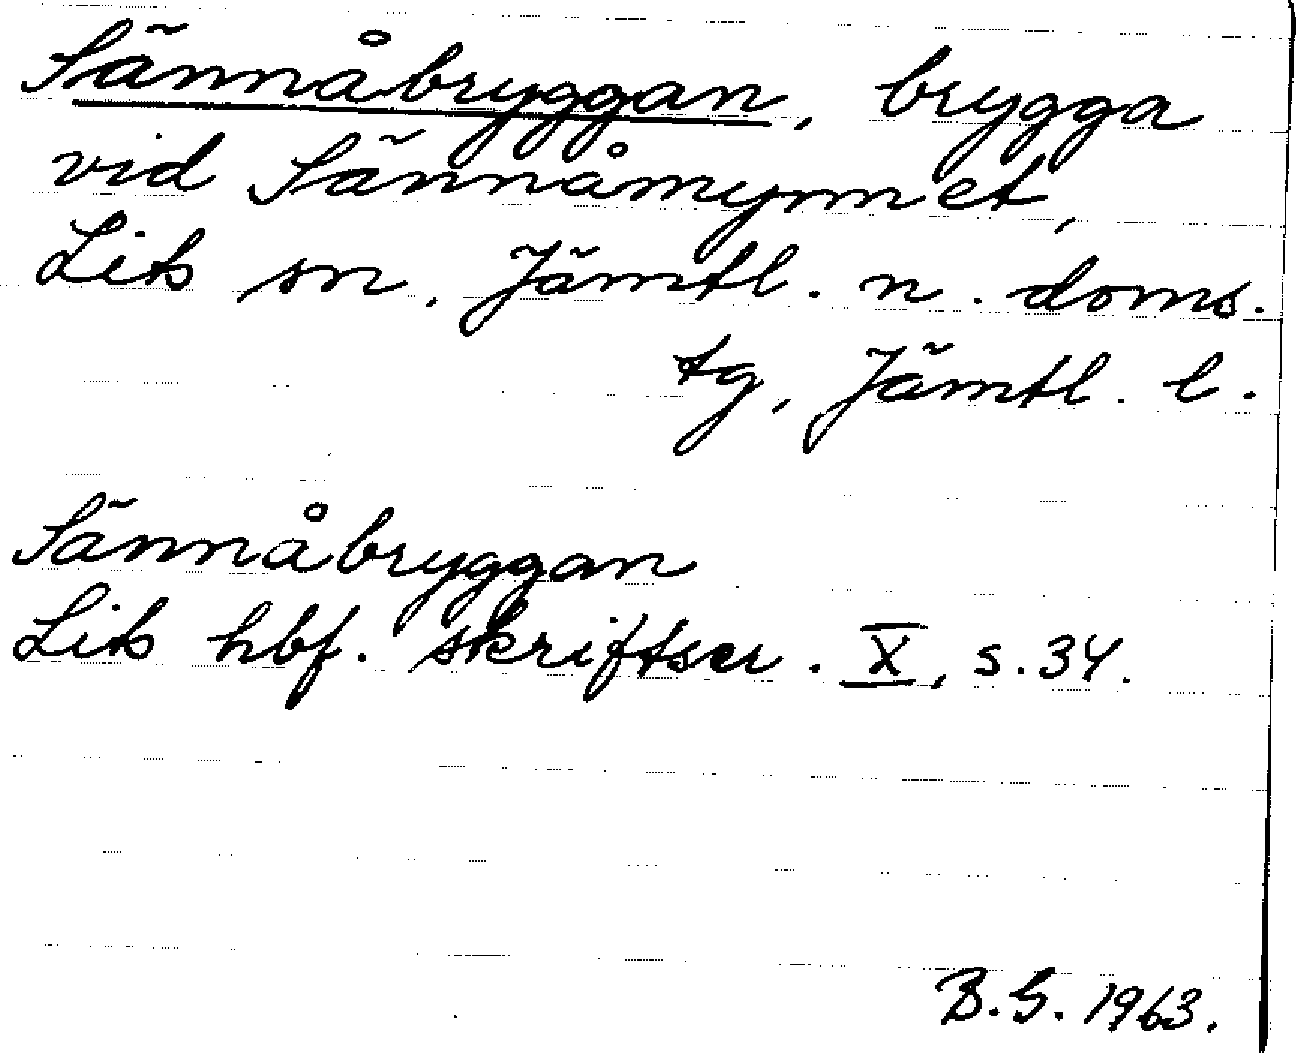 Sännåbryggan, brygga
vid Sännåmynnet,
Lits sn. Jämtl. n. doms.
tg, Jämtl. l.
Sännåbryggan
Lits hbf. skriftser. X, s. 34.
B.G. 1963.